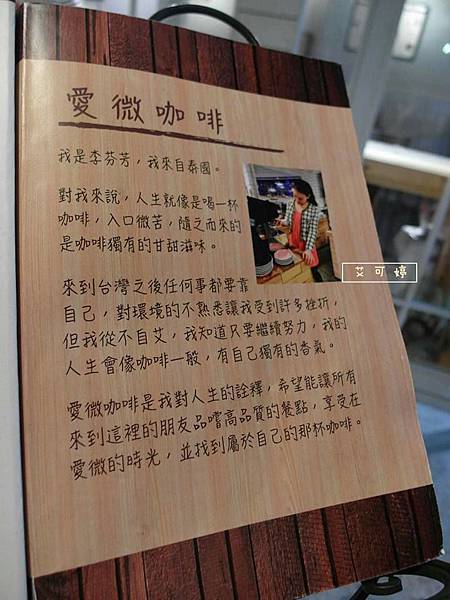 愛微咖啡
我是李芬芳，我來自泰國。
對我來說，人生就像是喝一杯
咖啡，入口微苦，隨之而來的
是咖啡獨有的甘甜滋味。
艾可婷
來到台灣之後任何事都要靠
自己，對環境的不熟悉讓我受到許多挫折，
但我從不自艾，我知道只要繼續努力，我的
人生會像咖啡一般，有自己獨有的香氣。
愛微咖啡是我對人生的詮釋，希望能讓所有
來到這裡的朋友品嚐高品質的餐點，享受在
愛微的時光，並找到屬於自己的那杯咖啡。